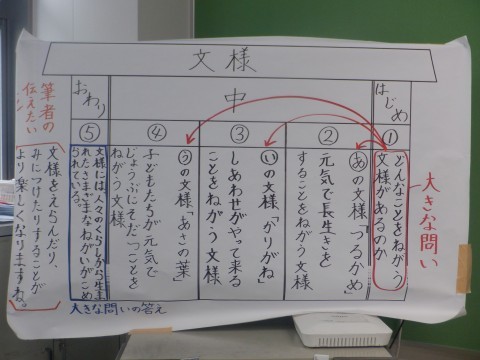 文様
はじめ
中
おわり
①
どんなことをねがう
文様があるのか
大きな問い
②
あの文様「つるかめ」
元気で長生きを
することをねがう文様
③
いの文様「かりがね」
しあわせがやって来る
ことをねがう文様
④
うの文様「あさの葉」
子どもたちが元気で
じょうぶにそだつことを
ねがう文様
⑤
文様には、人々のくらしから生ま
れたさまざまなねがいがこめ
られている。
大きな問いの答え
文様をえらんだり、
みにつけたりすることが
より楽しくなりますね。
筆者の
伝えたい